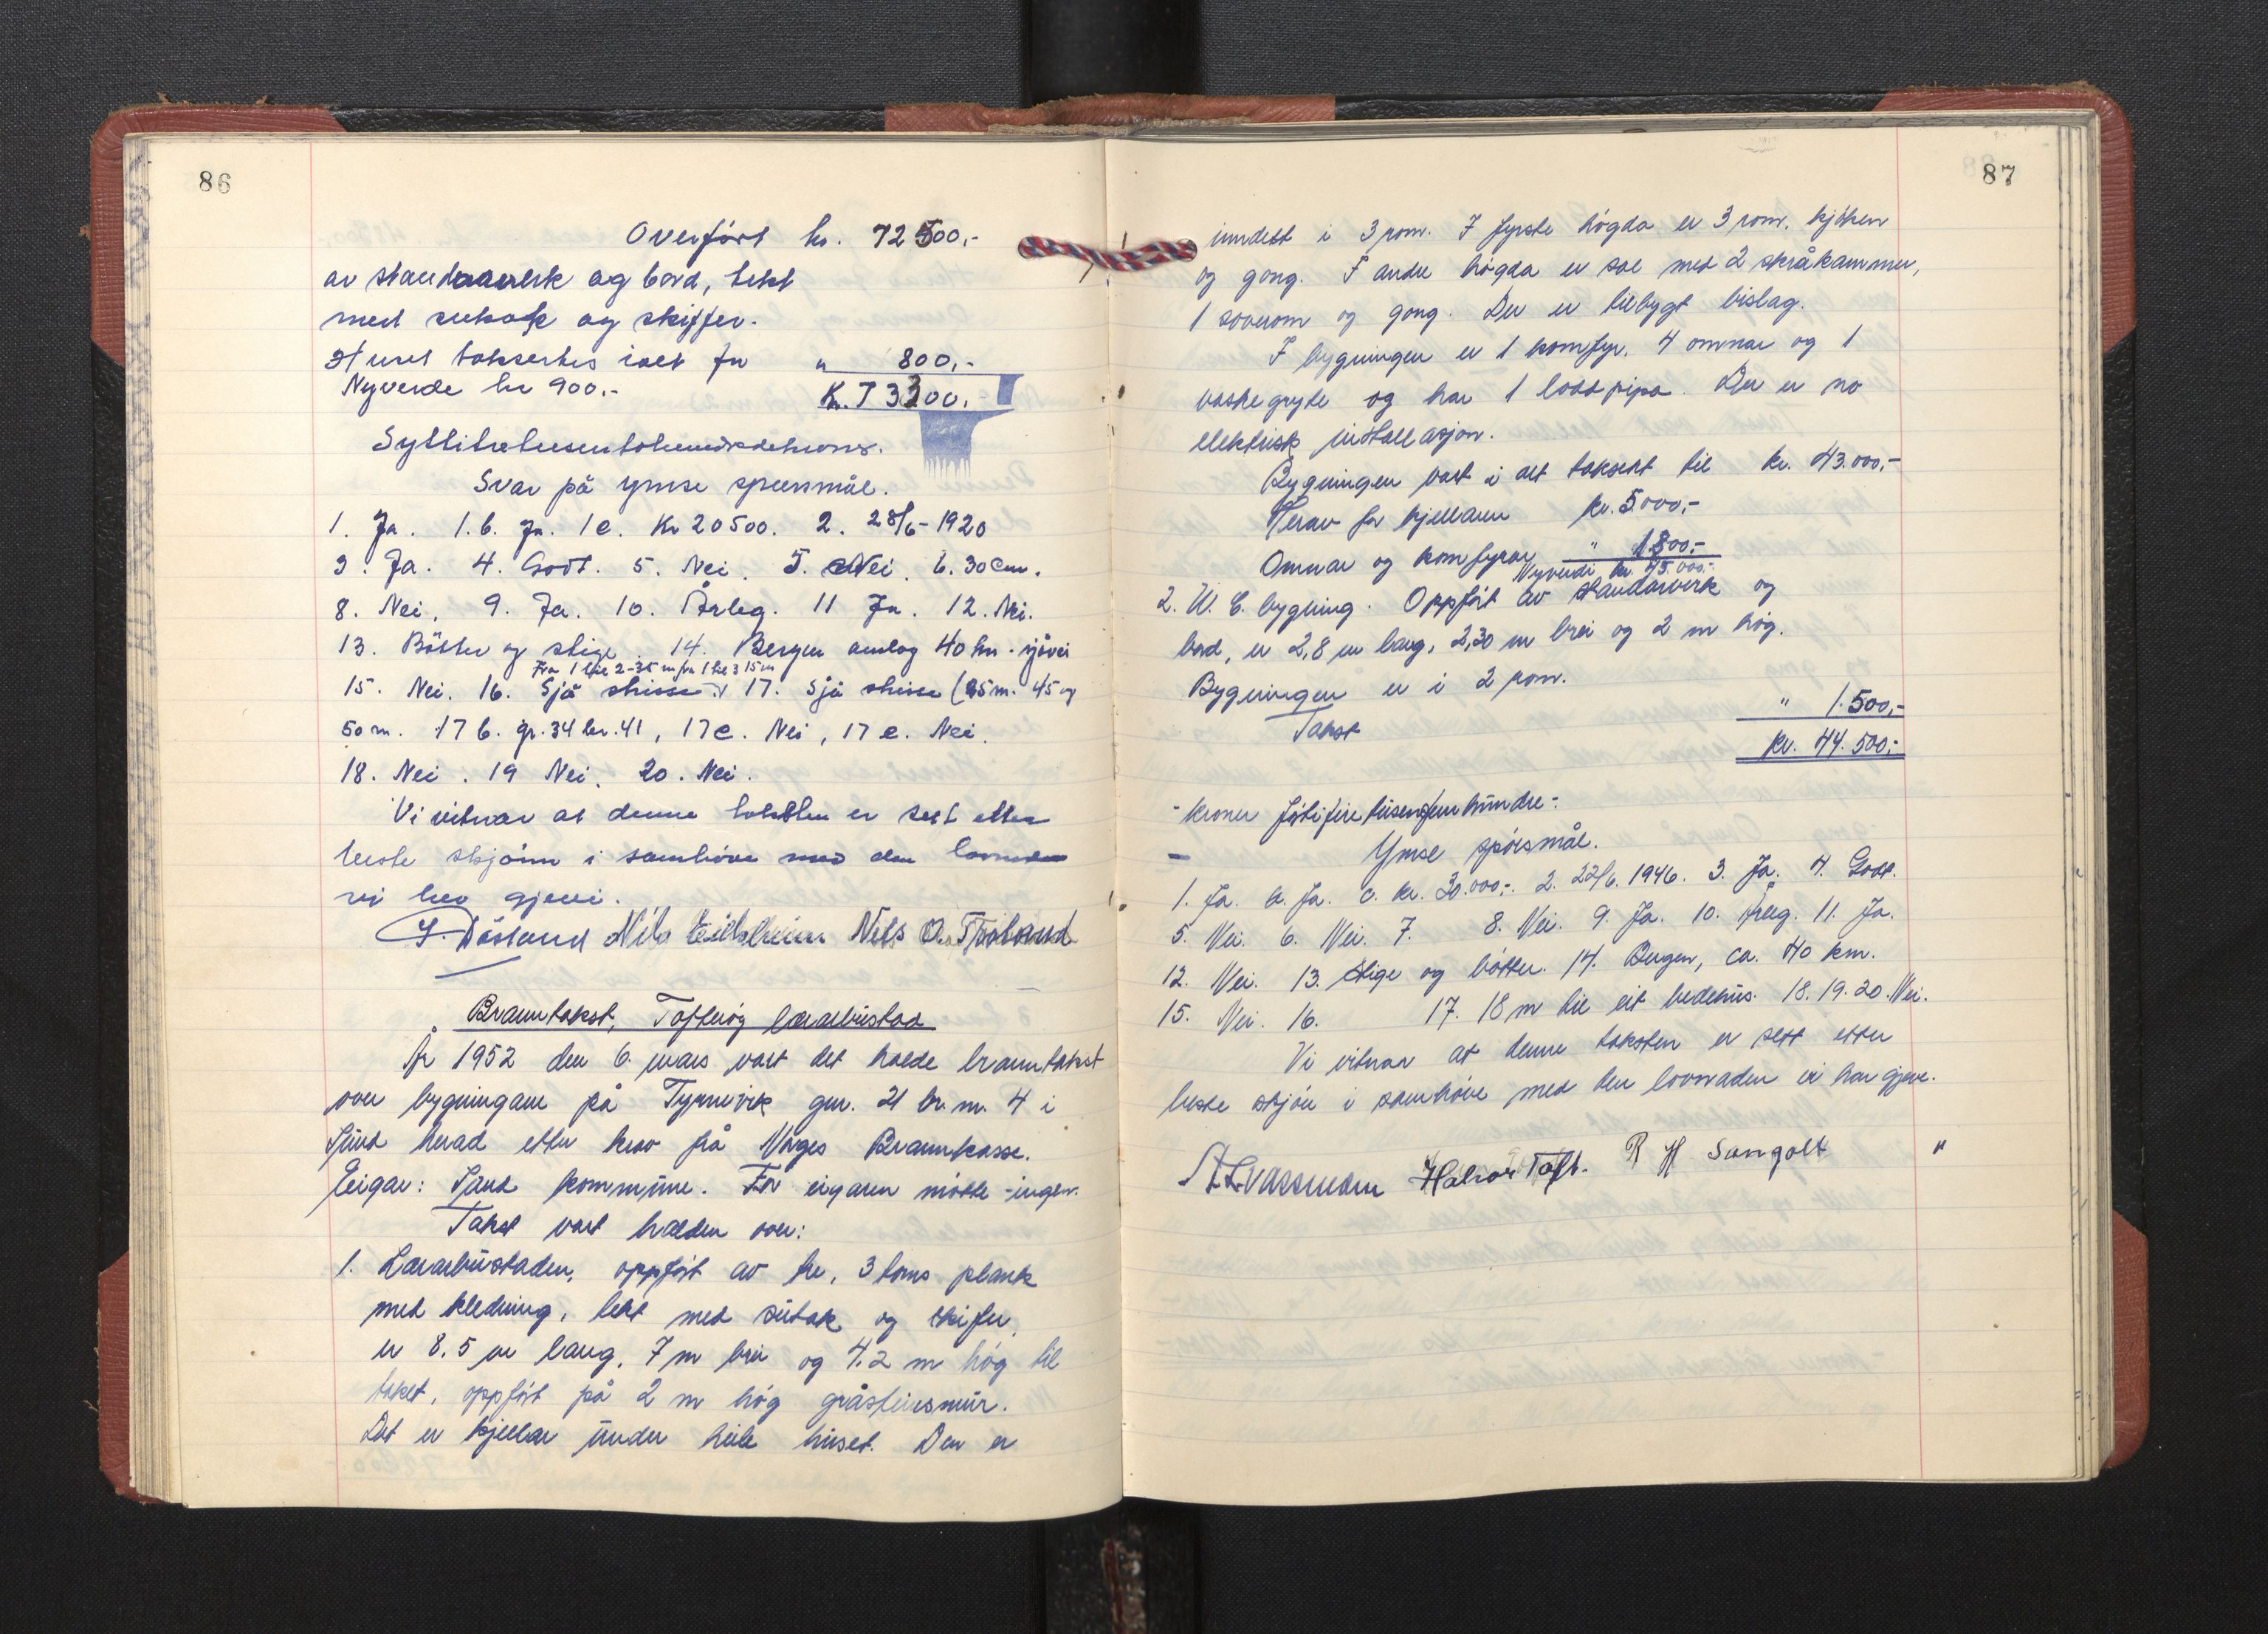 86
Overført kr. 72500,-
av standarverk og bord, tekt
med sutak og skiffer.
Huset taksertes ialt for " 800,-
Nyverde kr 900.- Kr. 73300.-
Syttitretusentrehundrekroner.
Svar på ymse spursmål.
1. Ja. 1.b. Ja. 1c. Kr 20500. 2. 28/6-1920
3. Ja. 4. Godt. 5. Nei. 5. Nei. 6. 30cm.
8. Nei. 9. Ja. 10. Årleg. 11 Ja. 12. Nei.
13. Bøtter og stige. 14. Bergen omlag 40 km. sjøvei
Fra 1 til 2-35 m fra 1 til 3 15m
15. Nei. 16. Sjå skisse. 17. Sjå skisse (25m. 45 og
50 m. 17 b. gr. 34 br. 41, 17c. Nei, 17 e. Nei.
18. Nei. 19 Nei. 20. Nei.
Vi vitnar at denne taksten er sett etter
beste skjønn i samhøve med den lovnaden
vi hev gjevi.
Nils Nils O. Tjoland
Branntakst, Toftevåg lærarbustad
År 1952 den 6. mars vart det halde branntakst
over bygningane på Tyrnevik gnr. 21 br.nr. 4 i
Sund herad etter krav frå Norges Brannkasse.
Eigar: Sund kommune. For eigaren møtte -ingen.
Takst vart halden over:
1. Lærarbustaden, oppført av tre, 3 toms plank
med kledning, tekt med sutak og skifer,
er 8.5 m lang, 7 m brei og 4.2 m høg til
taket, oppført på 2 m høg gråsteinsmur.
Det er kjellar under heile huset. Den er
87
inndelt i 3 rom. I fyrste høgda er 3 rom, kjøken
og gong. I andre høgda er sal med 2 skråkammer,
1 soverom og gong. Der er tilbygt bislag.
I bygningen er 1 komfyr, 4 omnar og 1
vaskegryte og har 1 loddpipa. Der er no
elektrisk installasjon.
Bygningen vart i alt taksert til kr. 43.000,-
Herav for kjellaren kr. 5.000,-
Omnar og komfyrar " 1800,-
Nyverdi kr. 45.000.-
2. W. C. bygning. Oppført av standarverk og
bord, er 2,8 m lang, 2,30 m brei og 2 m høg.
Bygningen er i 2 rom.
Takst " 1.500,-
kr. 44.500,-
- kroner førtifiretusenfemhundre -.
Ymse spørsmål.
1. Ja. b. Ja. c. kr. 20.000,-. 2. 22/6. 1946. 3. Ja. 4. Godt.
5. Nei. 6. Nei. 7. 8. Nei. 9. Ja. 10. Årleg. 11. Ja.
12. Nei. 13. Stige og bøtter. 14. Bergen, ca. 40 km.
15. Nei. 16. 17. 18 m til eit bedehus. 18. 19. 20. Nei.
Vi vitnar at denne taksten er sett etter
beste skjøn i samhøve med den lovnaden vi har gjeve.
Halvor Toft. R H Sangolt "